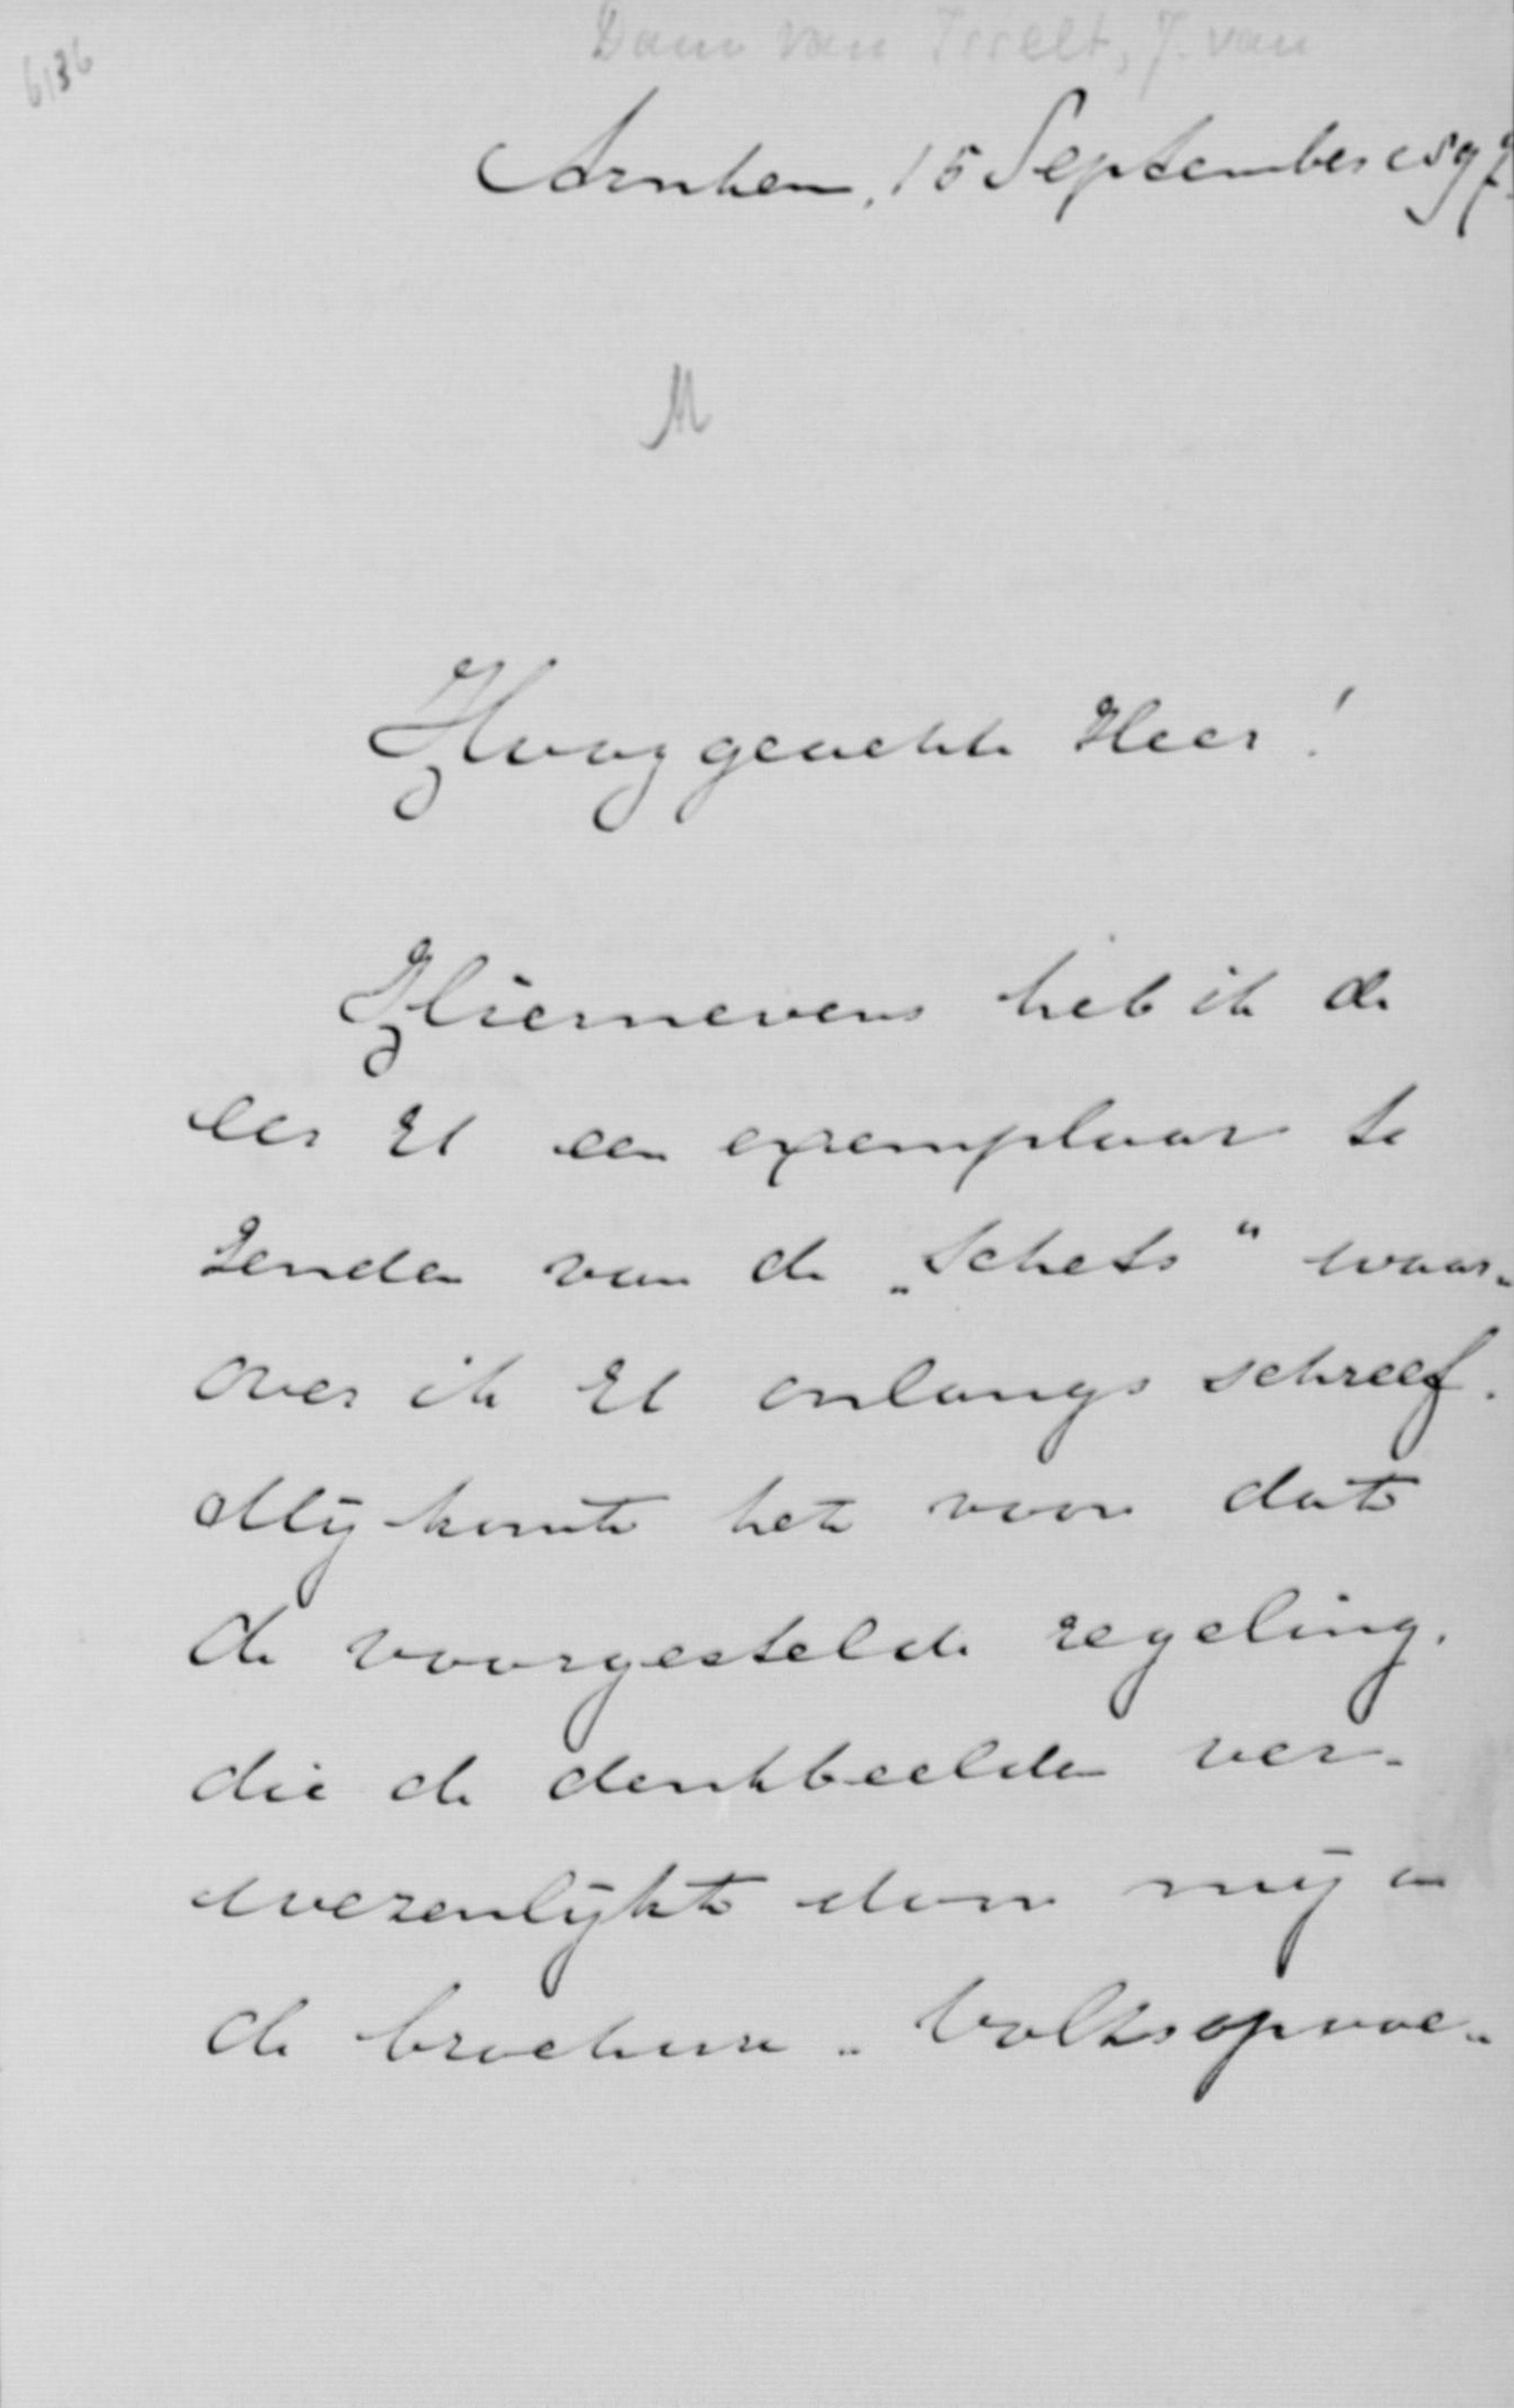 6136
Dam van Isselt, J. van
Arnhem, 15 September 1897
M
Hooggeachte Heer!
Hiernevens heb ik de
eer U een exemplaar te
zenden van de „Schets" waar-
over ik U onlangs schreef.
Mij komt het voor dat
de voorgestelde regeling,
die de denkbeelden ver-
wezenlijkt door mij in
de brochure „Volksopvoe-